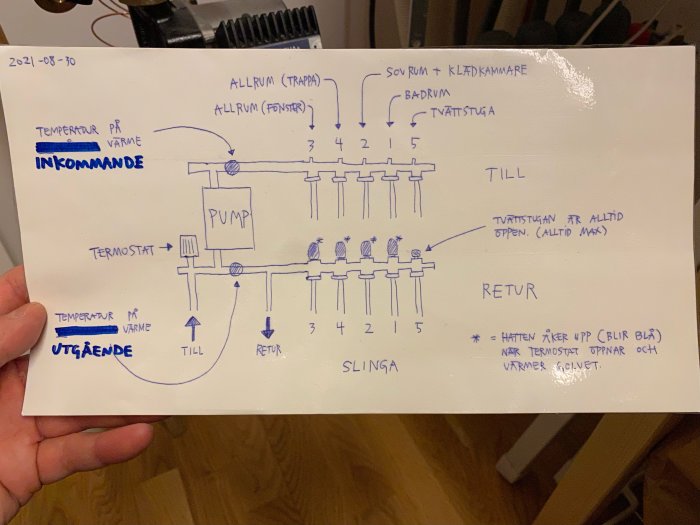 2021-08-30
ALLRUM (TRAPPA)
SOVRUM + KLÄDKAMMARE
ALLRUM (FÖNSTER)
BADRUM
TVÄTTSTUGA
TEMPERATUR PÅ
VÄRME
INKOMMANDE
3 4 2 1 5
TILL
PUMP
TERMOSTAT
* * * *
TVÄTTSTUGAN ÄR ALLTID
ÖPPEN. (ALLTID MAX)
RETUR
TEMPERATUR PÅ
VÄRME
UTGÅENDE
TILL
RETUR
3 4 2 1 5
SLINGA
* = HATTEN ÅKER UPP (BLIR BLÅ)
NÄR TERMOSTAT ÖPPNAR OCH
VÄRMER GOLVET.